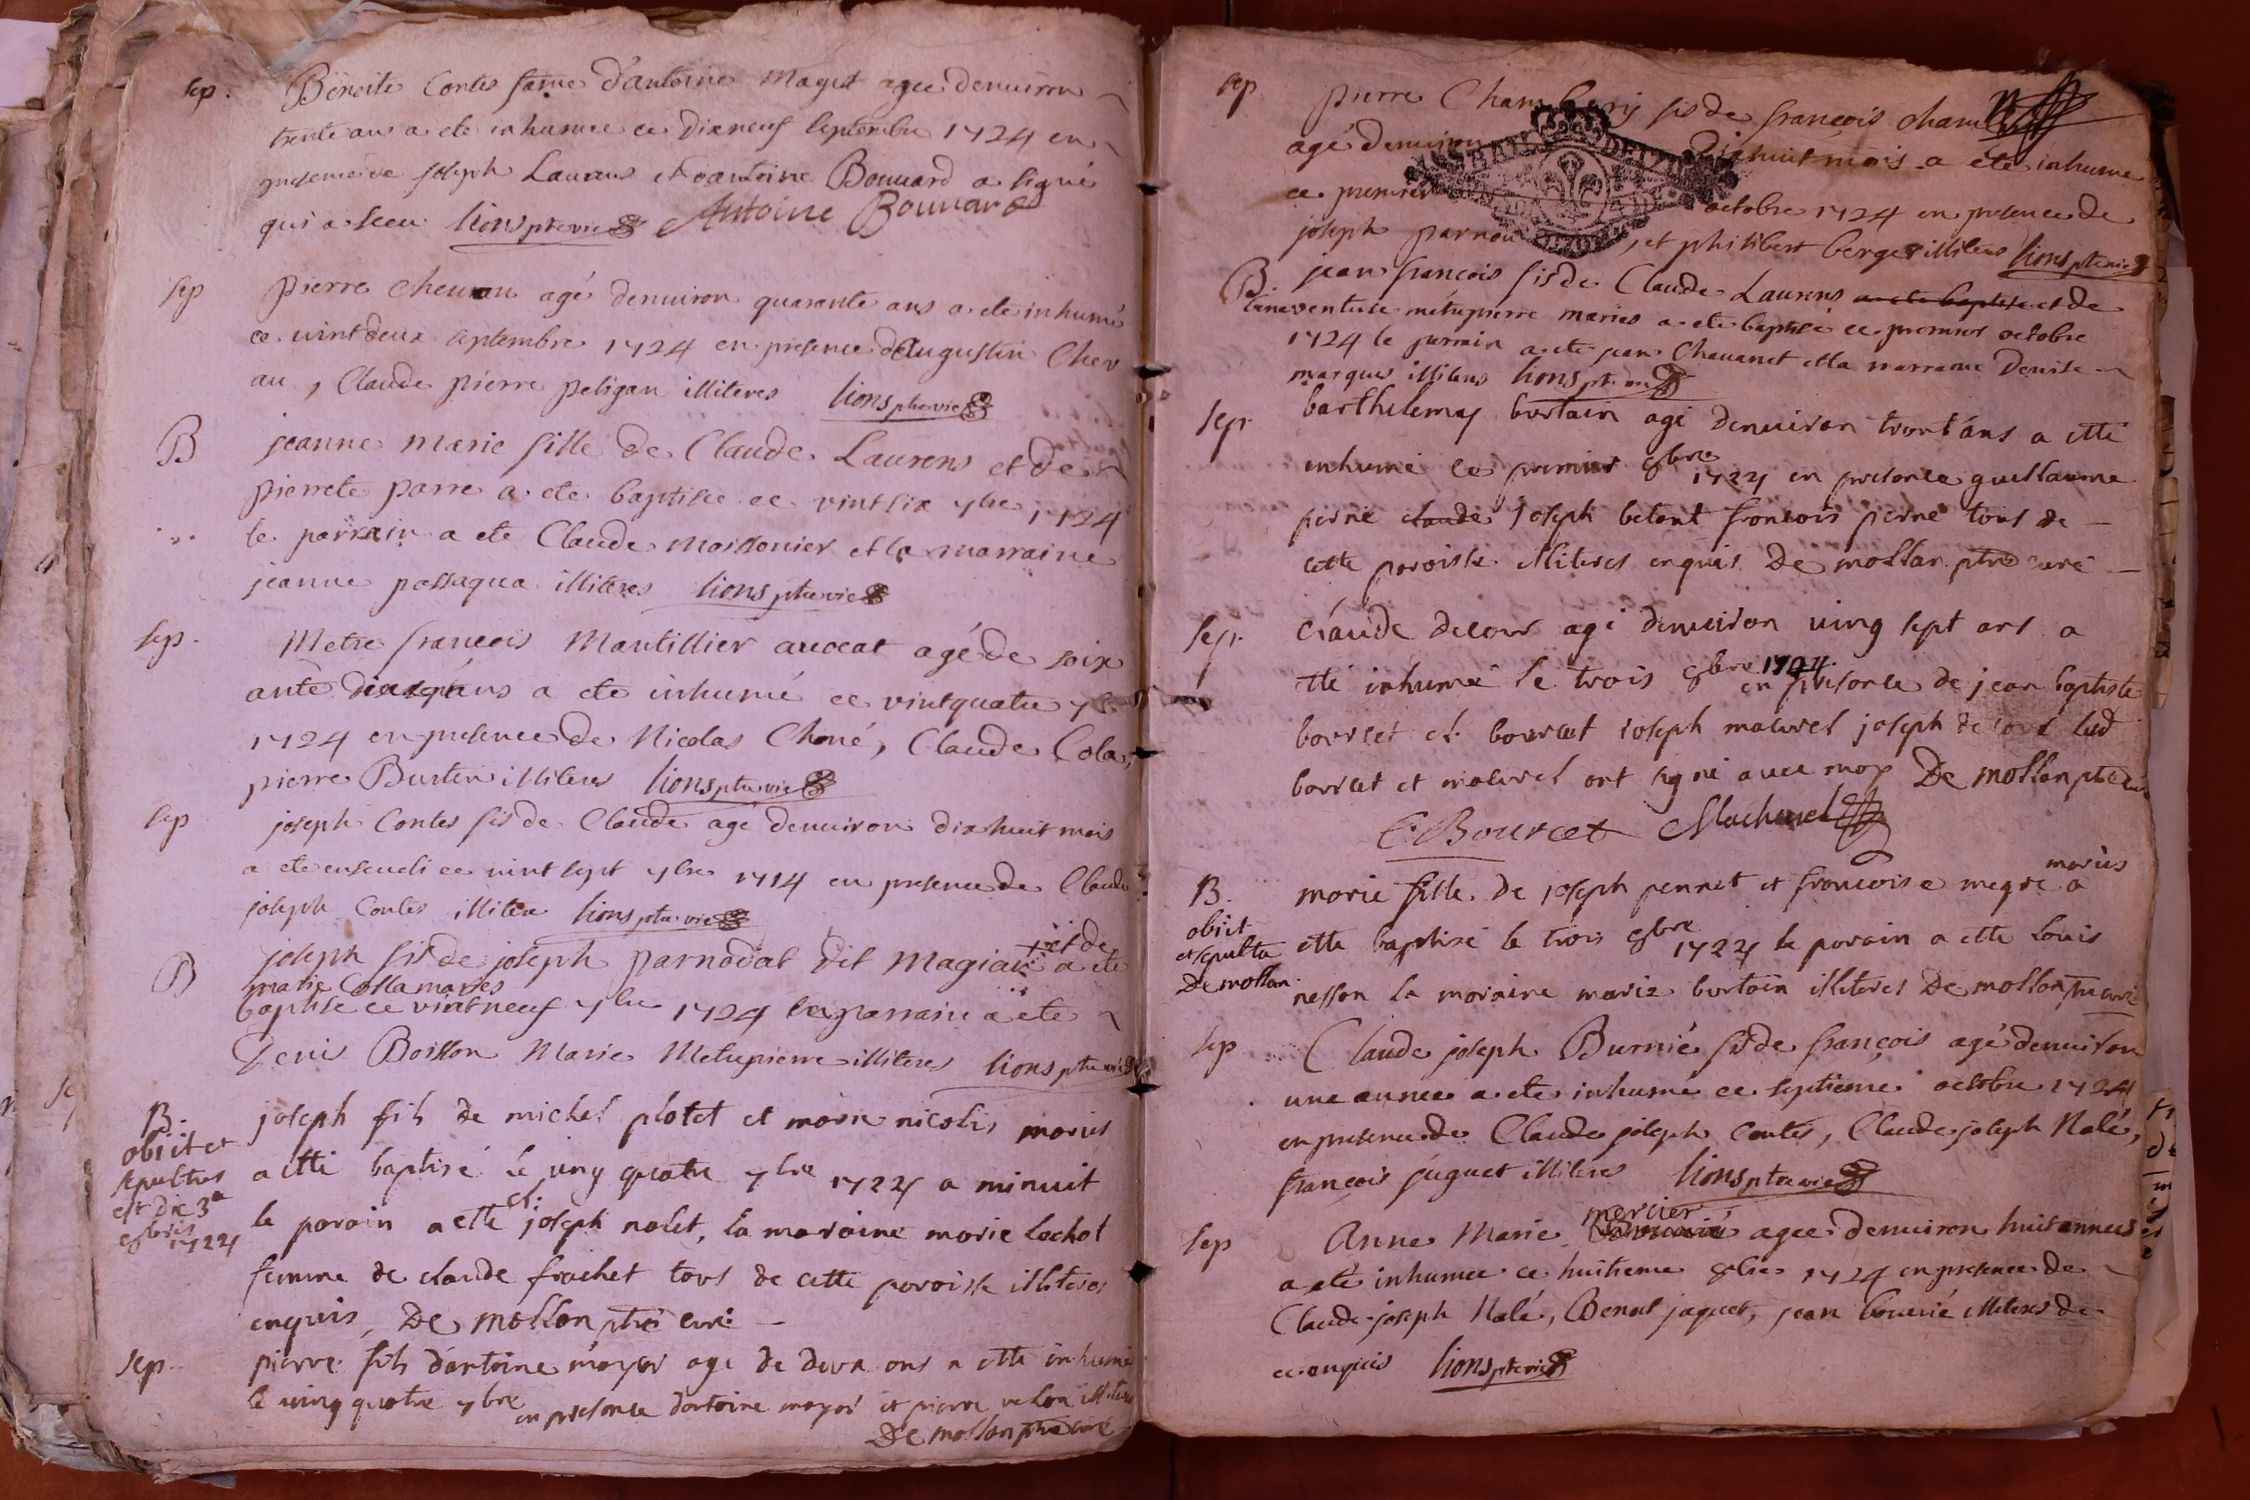 sep.
Benoite Contes fame d'antoine Mayet agee denuiron
trente ans a ete inhumee ce dixneuf septembre 1724 en
presence de joseph Laurans et antoine Bouuard a signé
qui a sceu lions ptre vic Antoine Bouuard
sep
pierre cheuau agé denuiron quarante ans a ete inhumé
ce vint deux septembre 1724 en presence d'augustin Chev
au, Claude pierre peligan illiteres lions ptre vic
B
jeanne marie fille de Claude Laurens et de
pierrete parre a ete baptisee ce vint six 7bre 1724
le parrain a ete Claude moissonier et la marraine
jeanne passaqua illiteres lions ptre vic
sep.
Metre francois Mantillier auocat agé de soix
ante ans a ete inhumé ce vintquatre 7bre
1724 en presence de Nicolas Choné, Claude Cola,
pierre Burtin illiteres lions ptre vic
sep
joseph Contes fis de Claude agé denuiron dixhuit mois
a ete enseueli ce vint sept 7bre 1724 en presence de Claude
joseph Contes illitere lions ptre vic
B
joseph fis de joseph parnodat dit Magia et de a ete
marie Colla maries
baptise ce vint neuf 7bre 1724 le parrain a ete
Denis Boisson Marie Metrepierre illiteres lions ptre vic
B.
obiit et
sepultus
est die 3a
8bris
1724
joseph fils de michel plotet et marie nicolis mariés
a etté baptisé le ving quatre 7bre 1724 a minuit
le parain a etté cl. joseph nalet, la maraine marie lochot
femme de claude frachet tous de cette paroisse illiteres
enquis, De mollan ptre curé
sep.
pierre fils d'antoine mayer agé de deux ans a etté inhumé
le ving quatre 7bre en presence d'antoine mayer et pierre illiteres
De mollan ptre curé
sep
pierre fis de françois
agé denuiron dixhuit mois a été inhume
ce premier octobre 1724 en presence de
joseph , et philibert berger illiteres lions ptre vic
B.
jean françois fis de Claude Laurens a ete baptise et de
beneventure metrepierre maries a ete baptisé ce premier octobre
1724 le parrain a ete jean Chauanet et la marraine Denise
marques illiteres lions ptre vic
sep.
barthelemy burtain agé denuiron trent ans a etté
inhumé le premier 8bre 1724 en presence guillaume
perné claude joseph betant francois perné tous de
cette paroisse illiteres enquis De mollan ptre curé
sep.
claude decour agé denuiron ving sept ans a
eté inhumé le trois 8bre 1724 en presence de jean baptiste
bourcet cl. bourcet joseph machurel joseph de cour led
bourcet et machurel ont signé auec moy De mollan ptre curé
C Bourcet Machurel
B.
obiit
et sepulta
De mollan
mariés
marie fille de joseph pennet et francoise megre a
etté baptisé le trois 8bre 1724 le parain a etté louis
nesson la maraine marie burtain illiteres De mollan ptre curé
sep
Claude joseph Burnié fis de françois agé denuiron
une annee a ete inhumé ce septieme octobre 1724
en presence de Claude joseph Contes, Claude joseph Nalé,
francois juguet illiteres lions ptre vic
sep
mercier
Anne Marie agee denuiron huit annees
a ete inhumee ce huitieme 8bre 1724 en presence de
Claude joseph Nalé, Benoit jaquet, jean illiteres de
ce enquis lions ptre vic